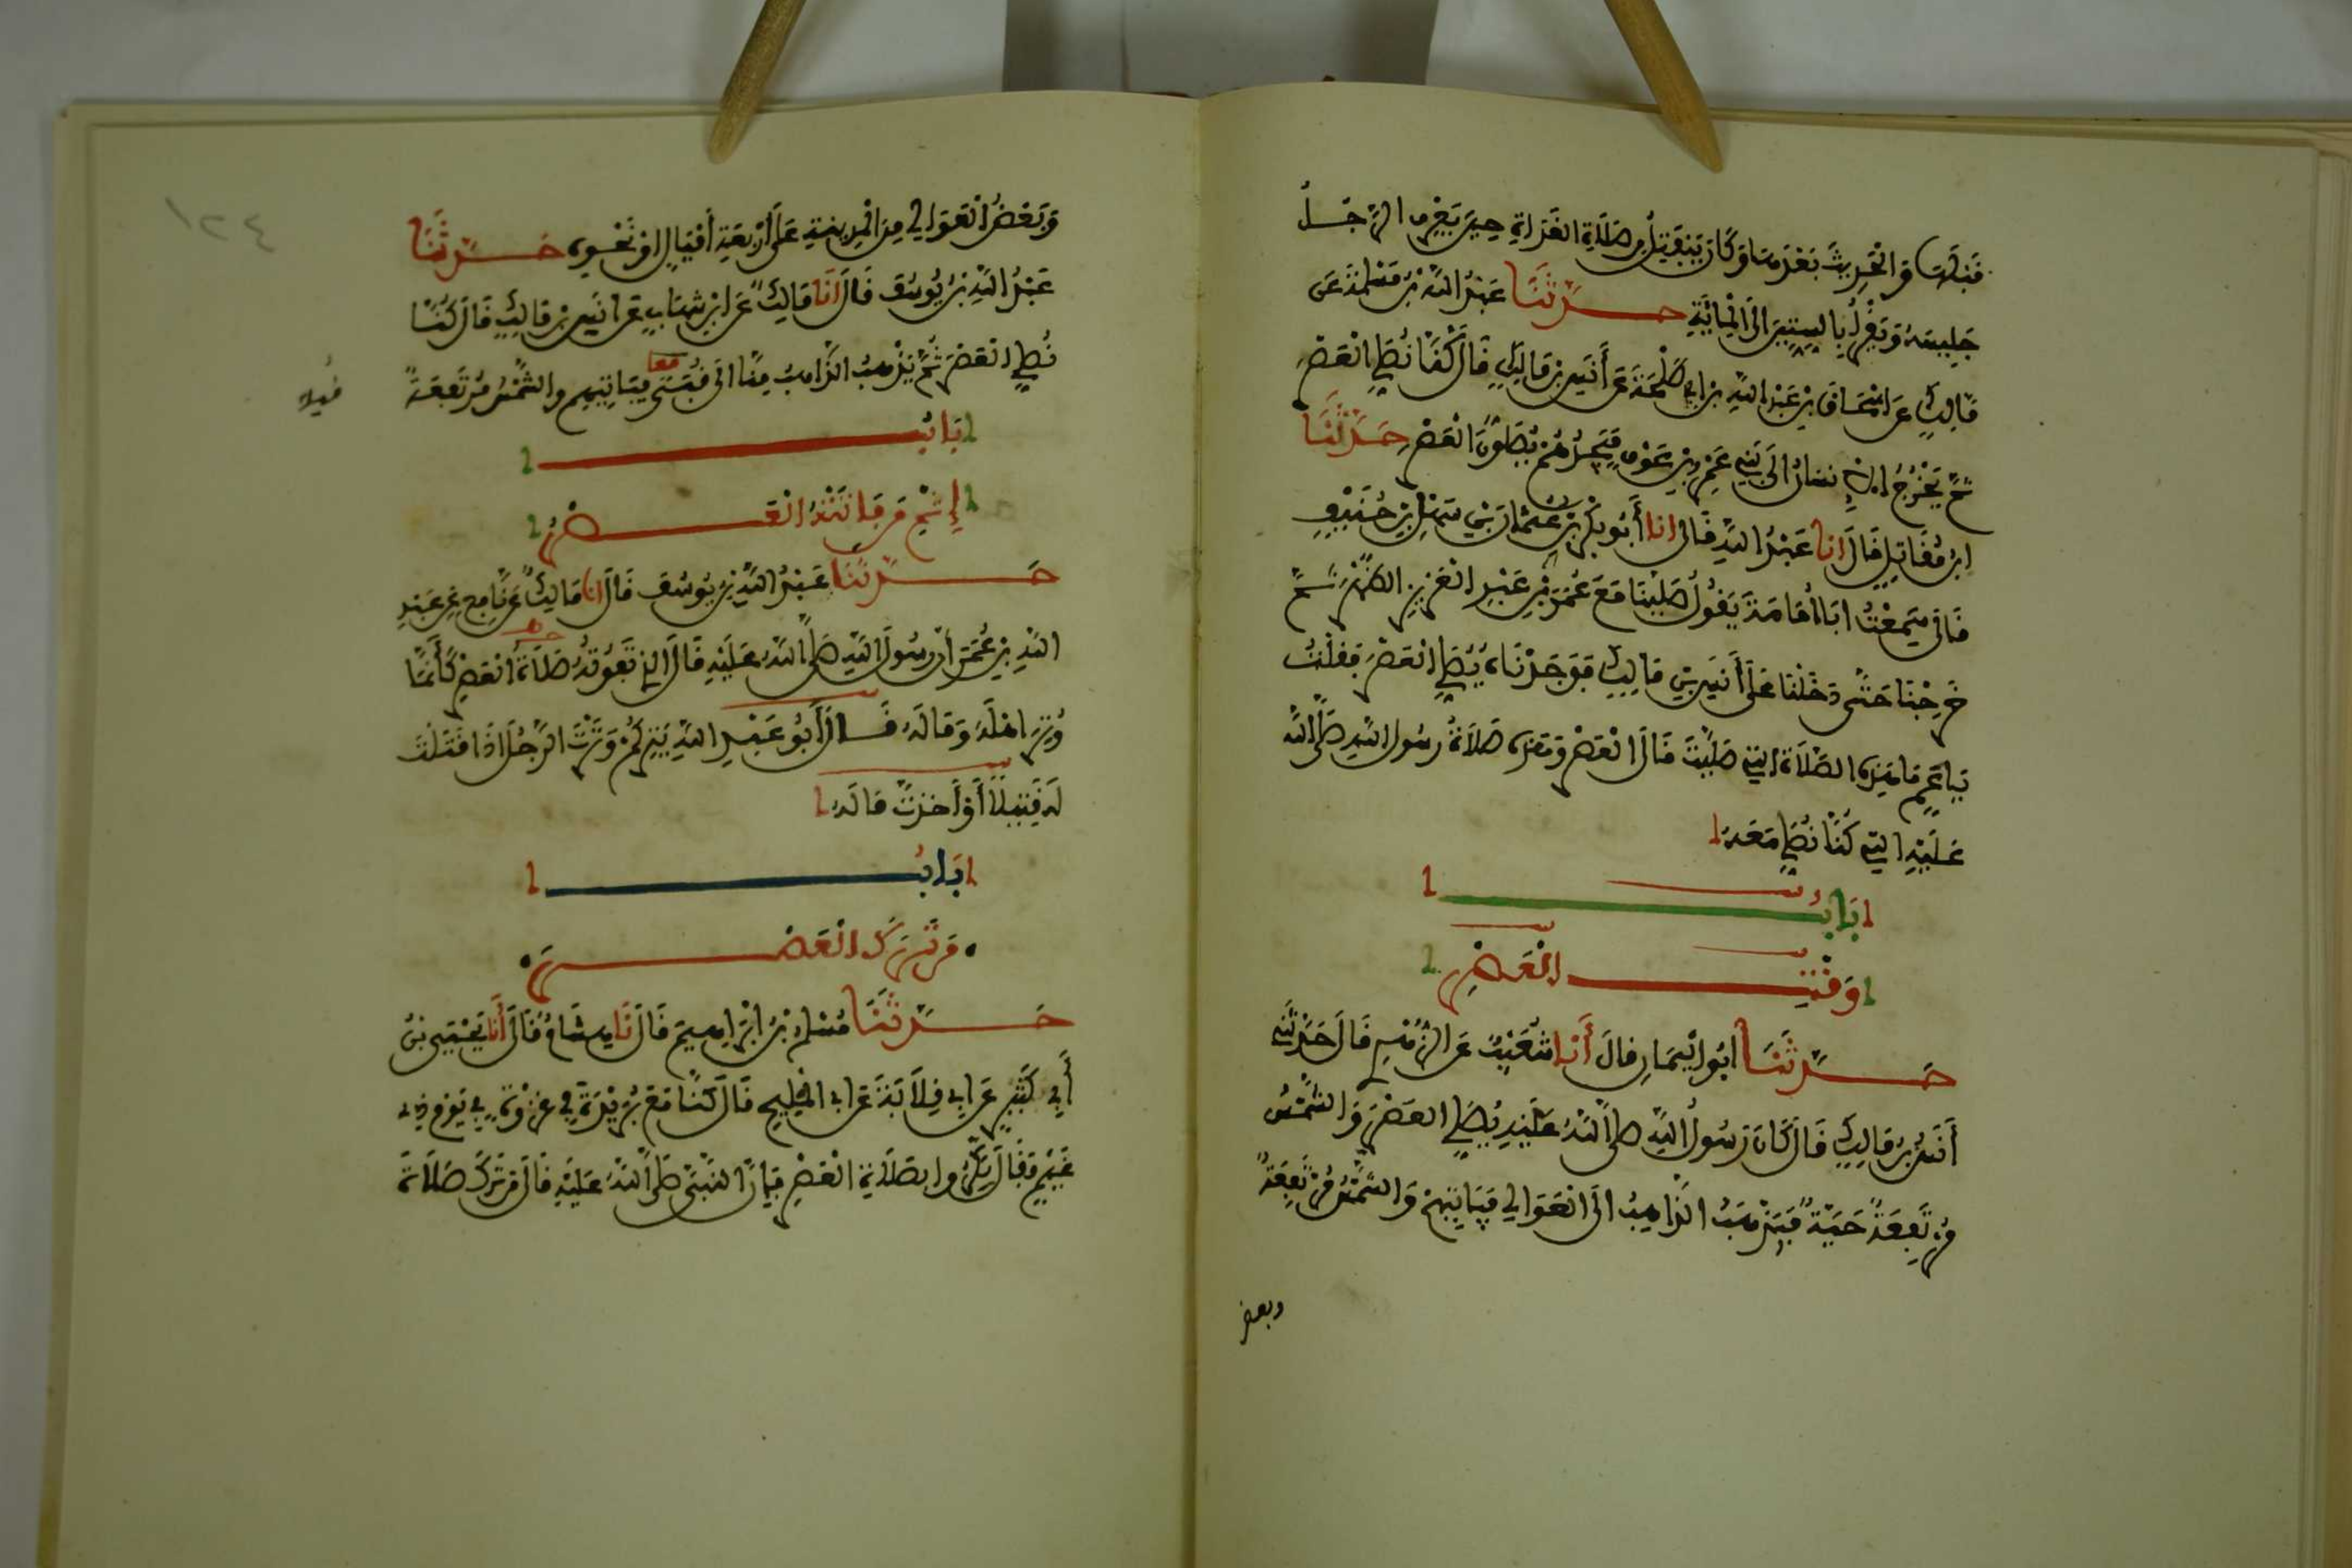 قبلها والحديث بعدها وكان ينفتل من صلاة الغداة حين يعرف الرجل
جليسه ويقرأ بالستين الى المائة حدثنا عبد الله بن مسلمة عن
مالك عن اسحاق بن عبد الله بن ابي طلحة عن أنس بن مالك قال كنا نصلي العصر
ثم يخرج الانسان الى بني عمرو بن عوف فيجدهم يصلون العصر حدثنا
ابن مقاتل قال انا عبد الله قال انا أبو بكر بن عثمان بن سهل بن حنيف
قال سمعت ابا أمامة يقول صلينا مع عمر بن عبد العزيز الظهر ثم
خرجنا حتى دخلنا على أنس بن مالك فوجدناه يصلي العصر فقلت
يا عم ما هذه الصلاة التي صليت قال العصر وهذه صلاة رسول الله صلى الله
عليه التي كنا نصلي معه
باب
وقت العصر
حدثنا أبو اليمان قال أنا شعيب عن الزهري قال حدثني
أنس بن مالك قال كان رسول الله صلى الله عليه يصلي العصر والشمس
مرتفعة حية فيذهب الذاهب الى العوالي فيأتيهم والشمس مرتفعة
وبعض
١٢٤
وبعض العوالي من المدينة على أربعة أميال أو نحوه حدثنا
عبد الله بن يوسف قال انا مالك عن ابن شهاب عن انس بن مالك قال كنا
نصلي العصر ثم يذهب الذاهب منا الى قباء فياتيهم والشمس مرتفعة
باب
إثم من فاتته العصر
حدثنا عبد الله بن يوسف قال انا مالك عن نافع عن عبد
الله بن عمر أن رسول الله صلى الله عليه قال الذي تفوته صلاة العصر كأنما
وتر اهله وماله قال أبو عبد الله يتركم وترت الرجل اذا قتلت
له قتيلا أو أخذت ماله
باب
من ترك العصر
حدثنا مسلم بن ابراهيم قال نا هشام قال أنا يحيى بن
أبي كثير عن ابي قلابة عن ابي المليح قال كنا مع بريدة في غزوة في يوم ذي
غيم فقال بكروا بصلاة العصر فإن النبي صلى الله عليه قال من ترك صلاة